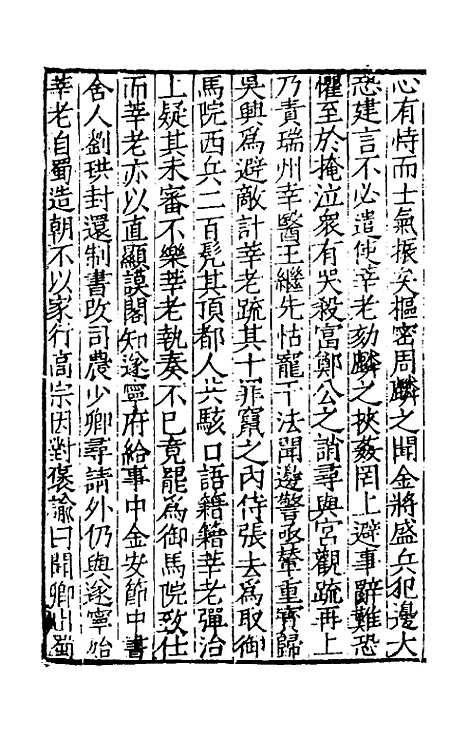 心有恃而士氣振矣樞密周麟之聞金將盛兵犯邊大
恐建言不必遣使莘老劾麟之挾姦罔上避事辭難恐
懼至於掩泣衆有哭殺富鄭公之誚尋與宮觀疏再上
乃責瑞州幸醫王繼先怙寵干法聞邊警亟輦重寶歸
吳興爲避敵計莘老疏其十罪竄之内侍張去爲取御
馬院西兵二百髡其頂都人共駭口語籍籍莘老彈治
上疑其未審不樂莘老執奏不已竟罷爲御馬院致仕
而莘老亦以直顯謨閣知遂寧府給事中金安節中書
舍人劉珙封還制書改司農少卿尋請外仍與遂寧始
莘老自蜀造朝不以家行高宗因對褒諭曰聞卿出蜀